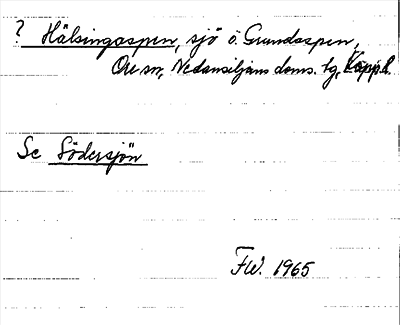 ? Hälsingaspen, sjö ö. Grundaspen,
Ore sn, Nedansiljans doms. lg, Kopp. l.
Se Södersjön
F.W. 1965